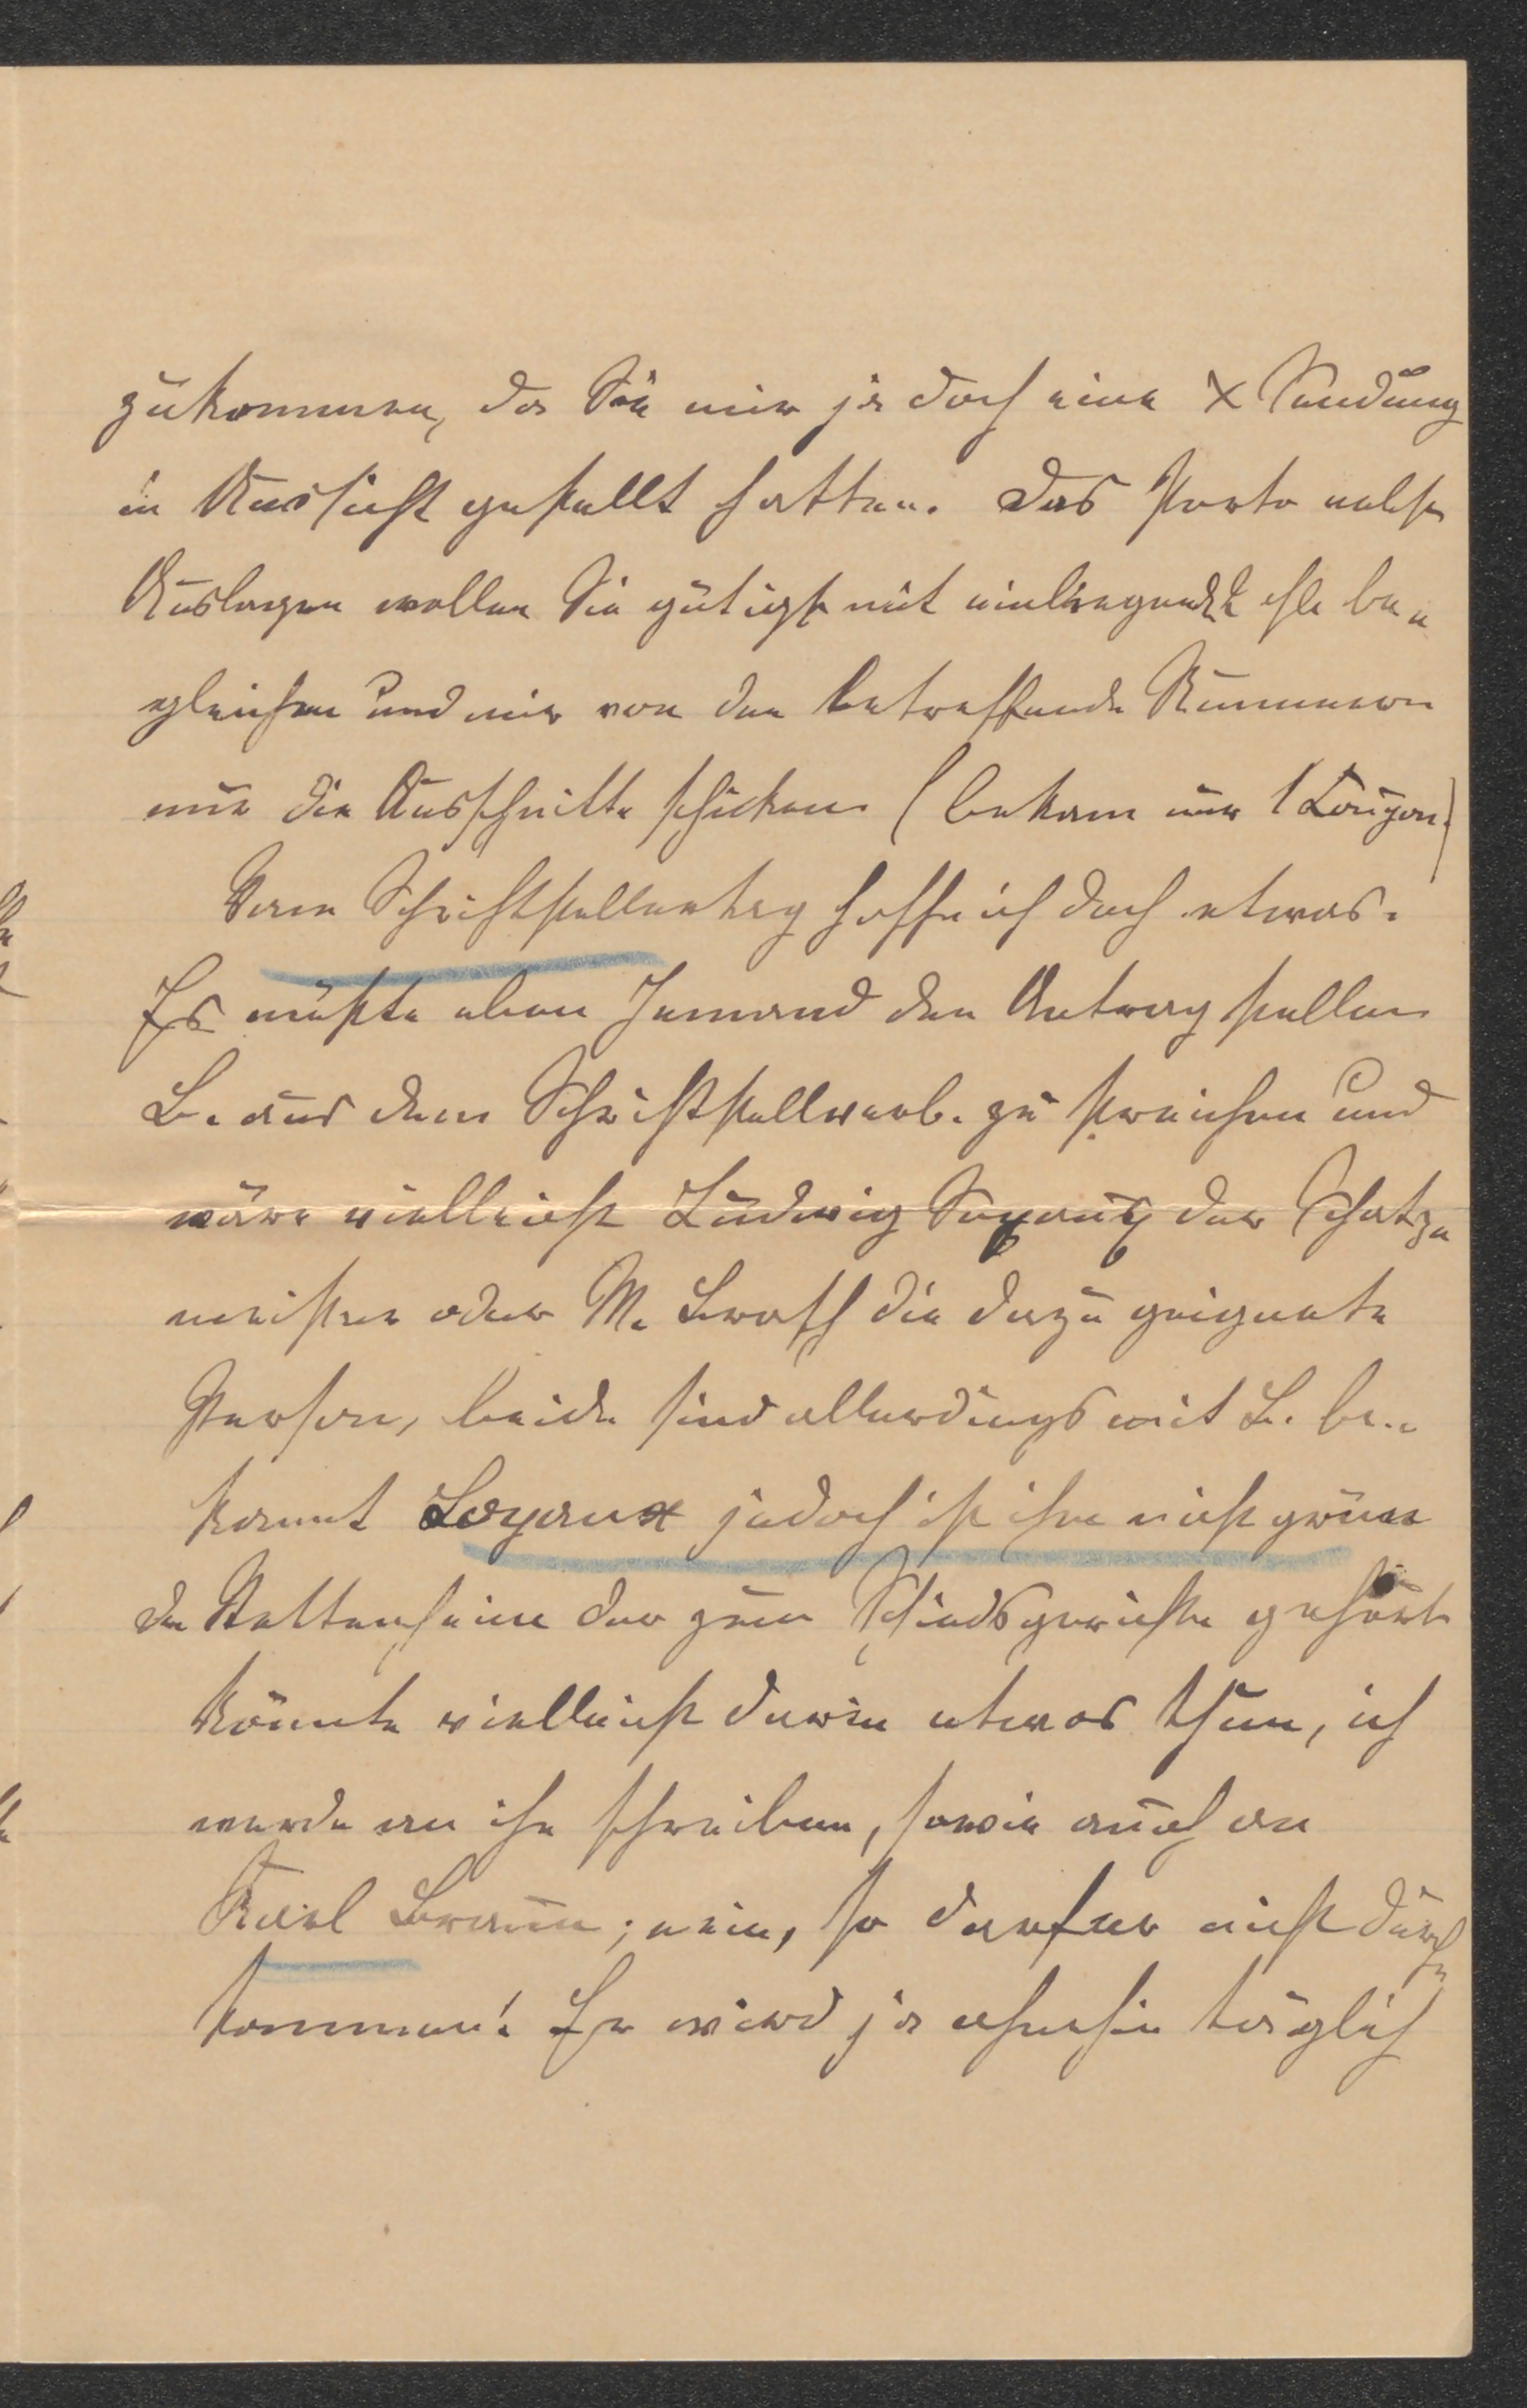 zukommen, da Sie mir ja doch eine X Sendung
in Aussicht gestellt hatten. Das Porto nebst
Auslagen wollen Sie gütigst mit einliegend be-
gleichen und mir von den betreffende Nummern
nur die Ausschnitte schicken (bekam nur 1 Coupon.)
Vom Schriftstellertag hoffe ich doch etwas.
Es müßte eben Jemand den Antrag stellen
L. aus dem Schriftstellverb. zu streichen und
wäre vielleicht Ludwig Soyaux der Schatz-
meister oder M. die dazu geignete
Person, beide sind allerdings mit L. be-
kannt Soyaux jedoch ist ihm nicht grün
den Stettenheim der zum Schiedsgerichte gehört
könnte vielleicht darin etwas thun, ich
werde an ihn schreiben, sowie auch an
Karl Braun; nein, so darf er nicht durch-
kommen! Er wird ja ohnehin täglich